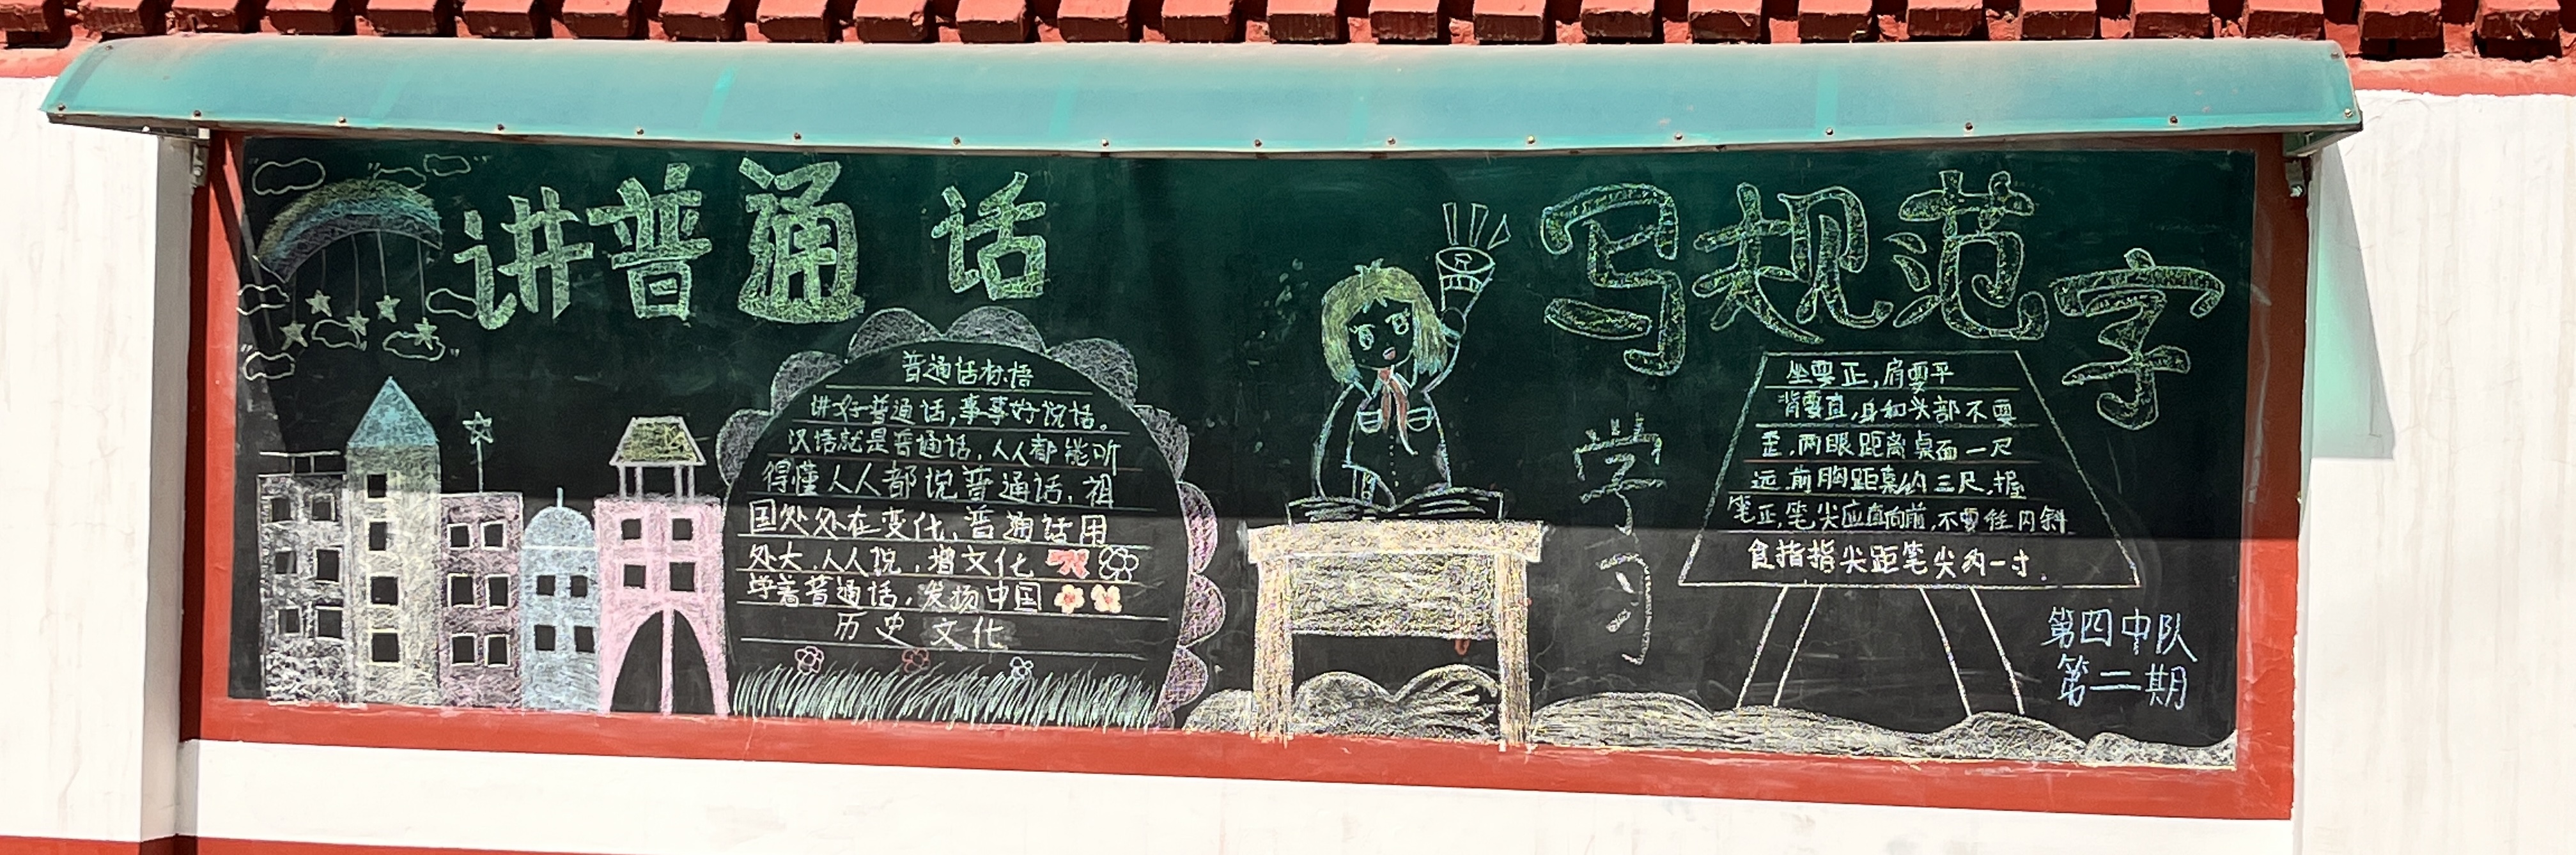 讲普通话
普通话标语
讲好普通话,事事好说话。
汉语就是普通话,人人都能听
得懂人人都说普通话,祖
国处处在变化,普通话用
处大,人人说,增文化
学着普通话,发扬中国
历史文化
写规范字
学习
坐要正,肩要平
背要直,身和头部不要
歪,两眼距离桌面一尺
远,前胸距桌约三尺,握
笔正,笔尖应直向前,不要往内斜
食指指尖距笔尖约一寸.
第四中队
第二期